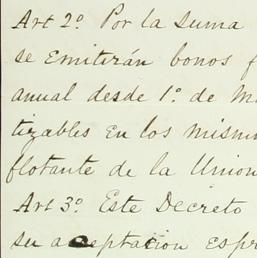 Art 2º. Por la suma
se emitirán bonos
anual desde 1º. de
tizables en los mism
flotante de la Union
Art 3º. Este Decreto
su aceptacion espr